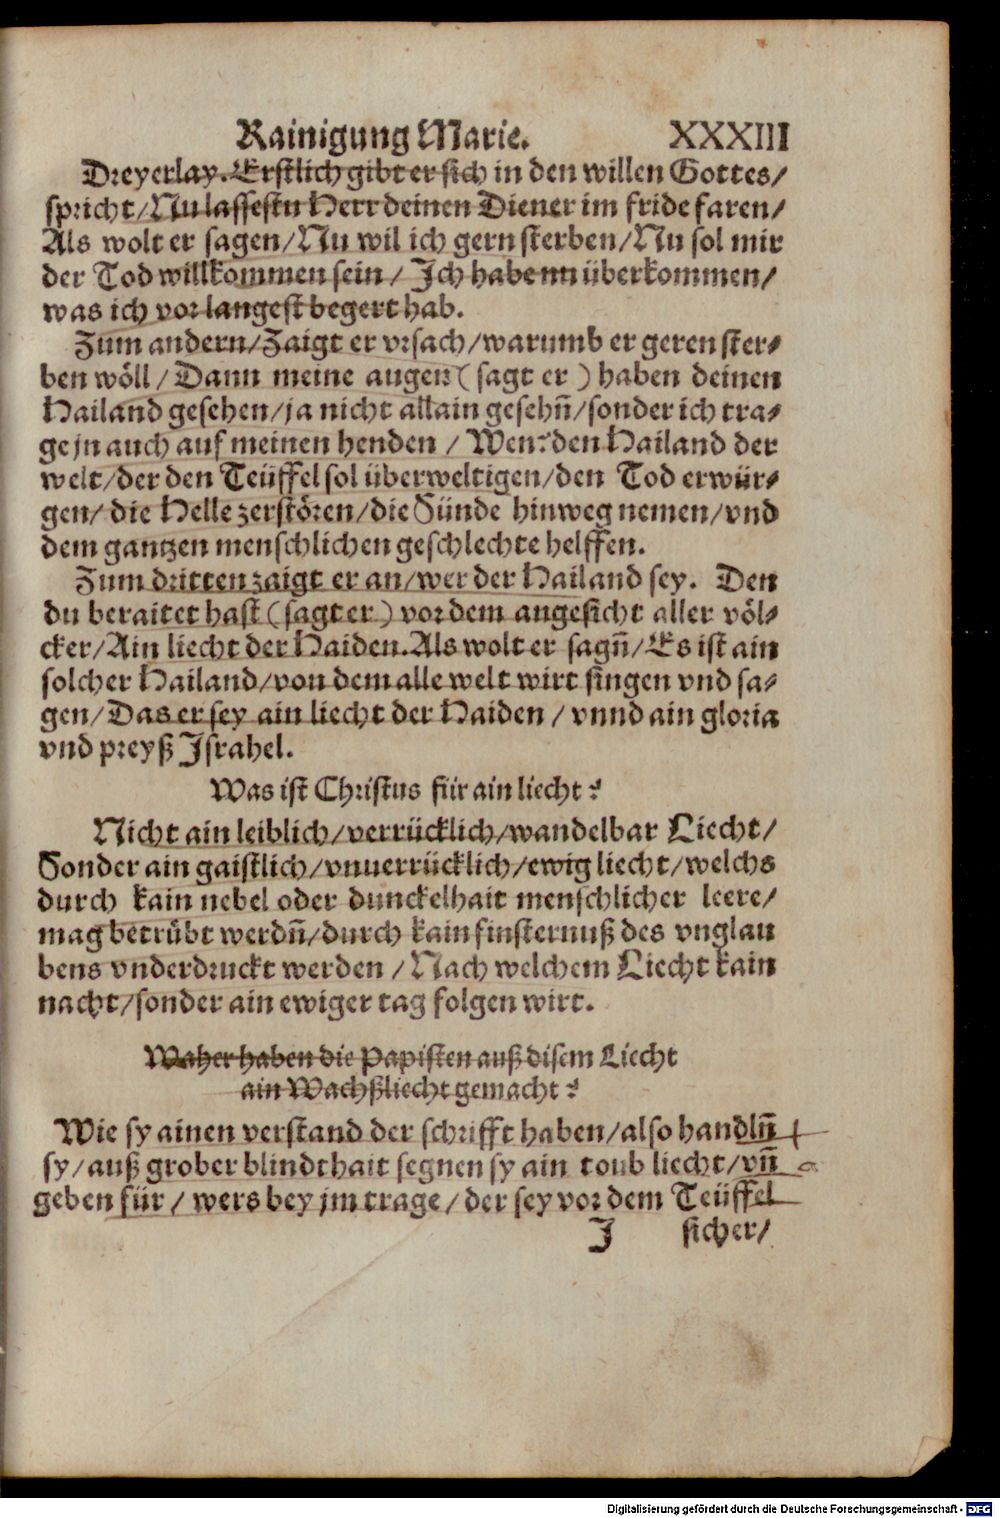 Rainigung Marie. XXXIII
Dreyerlay. Erstlich gibt er sich in den willen Gottes/
spricht/Nu lassestu Herr deinen Diener im fride faren/
Als wolt er sagen/Nu wil ich gern sterben/Nu sol mir
der Tod willkommen sein/ Ich habe nu überkommen/
was ich vor langest begert hab.
Zum andern/Zaigt er vrsach/warumb er geren ster-
ben wöll/Dann meine augen (sagt er) haben deinen
Hailand gesehen/ja nicht allain gesehñ/sonder ich tra-
ge jn auch auf meinen henden / Wen? den Hailand der
welt/der den Teüffel sol überweltigen/den Tod erwür-
gen/ die Helle zerstören/die Sünde hinweg nemen/vnd
dem gantzen menschlichen geschlechte helffen.
Zum dritten zaigt er an/wer der Hailand sey. Den
du beraitet hast (sagt er) vor dem angesicht aller völ-
cker/Ain liecht der Haiden. Als wolt er sagñ/Es ist ain
solcher Hailand/von dem alle welt wirt singen vnd sa-
gen/Das er sey ain liecht der Haiden / vnnd ain gloria
vnd preyß Israhel.
Was ist Christus für ain liecht?
Nicht ain leiblich/verrücklich/wandelbar Liecht/
Sonder ain gaistlich/vnuerrücklich/ewig liecht/welchs
durch kain nebel oder dunckelhait menschlicher leere/
mag betrůbt werdñ/durch kain finsternuß des vnglau
bens vnderdruckt werden /Nach welchem Liecht kain
nacht/sonder ain ewiger tag folgen wirt.
Waher haben die Papisten auß disem Liecht
ain Wachßliecht gemacht?
Wie sy ainen verstand der schrifft haben/also handlñ
sy/auß grober blindthait segnen sy ain toub liecht/vñ
geben für / wers bey jm trage/der sey vor dem Teüffel
I sicher/
Digitalisierung gefördert durch die Deutsche Forschungsgemeinschaft - DFG